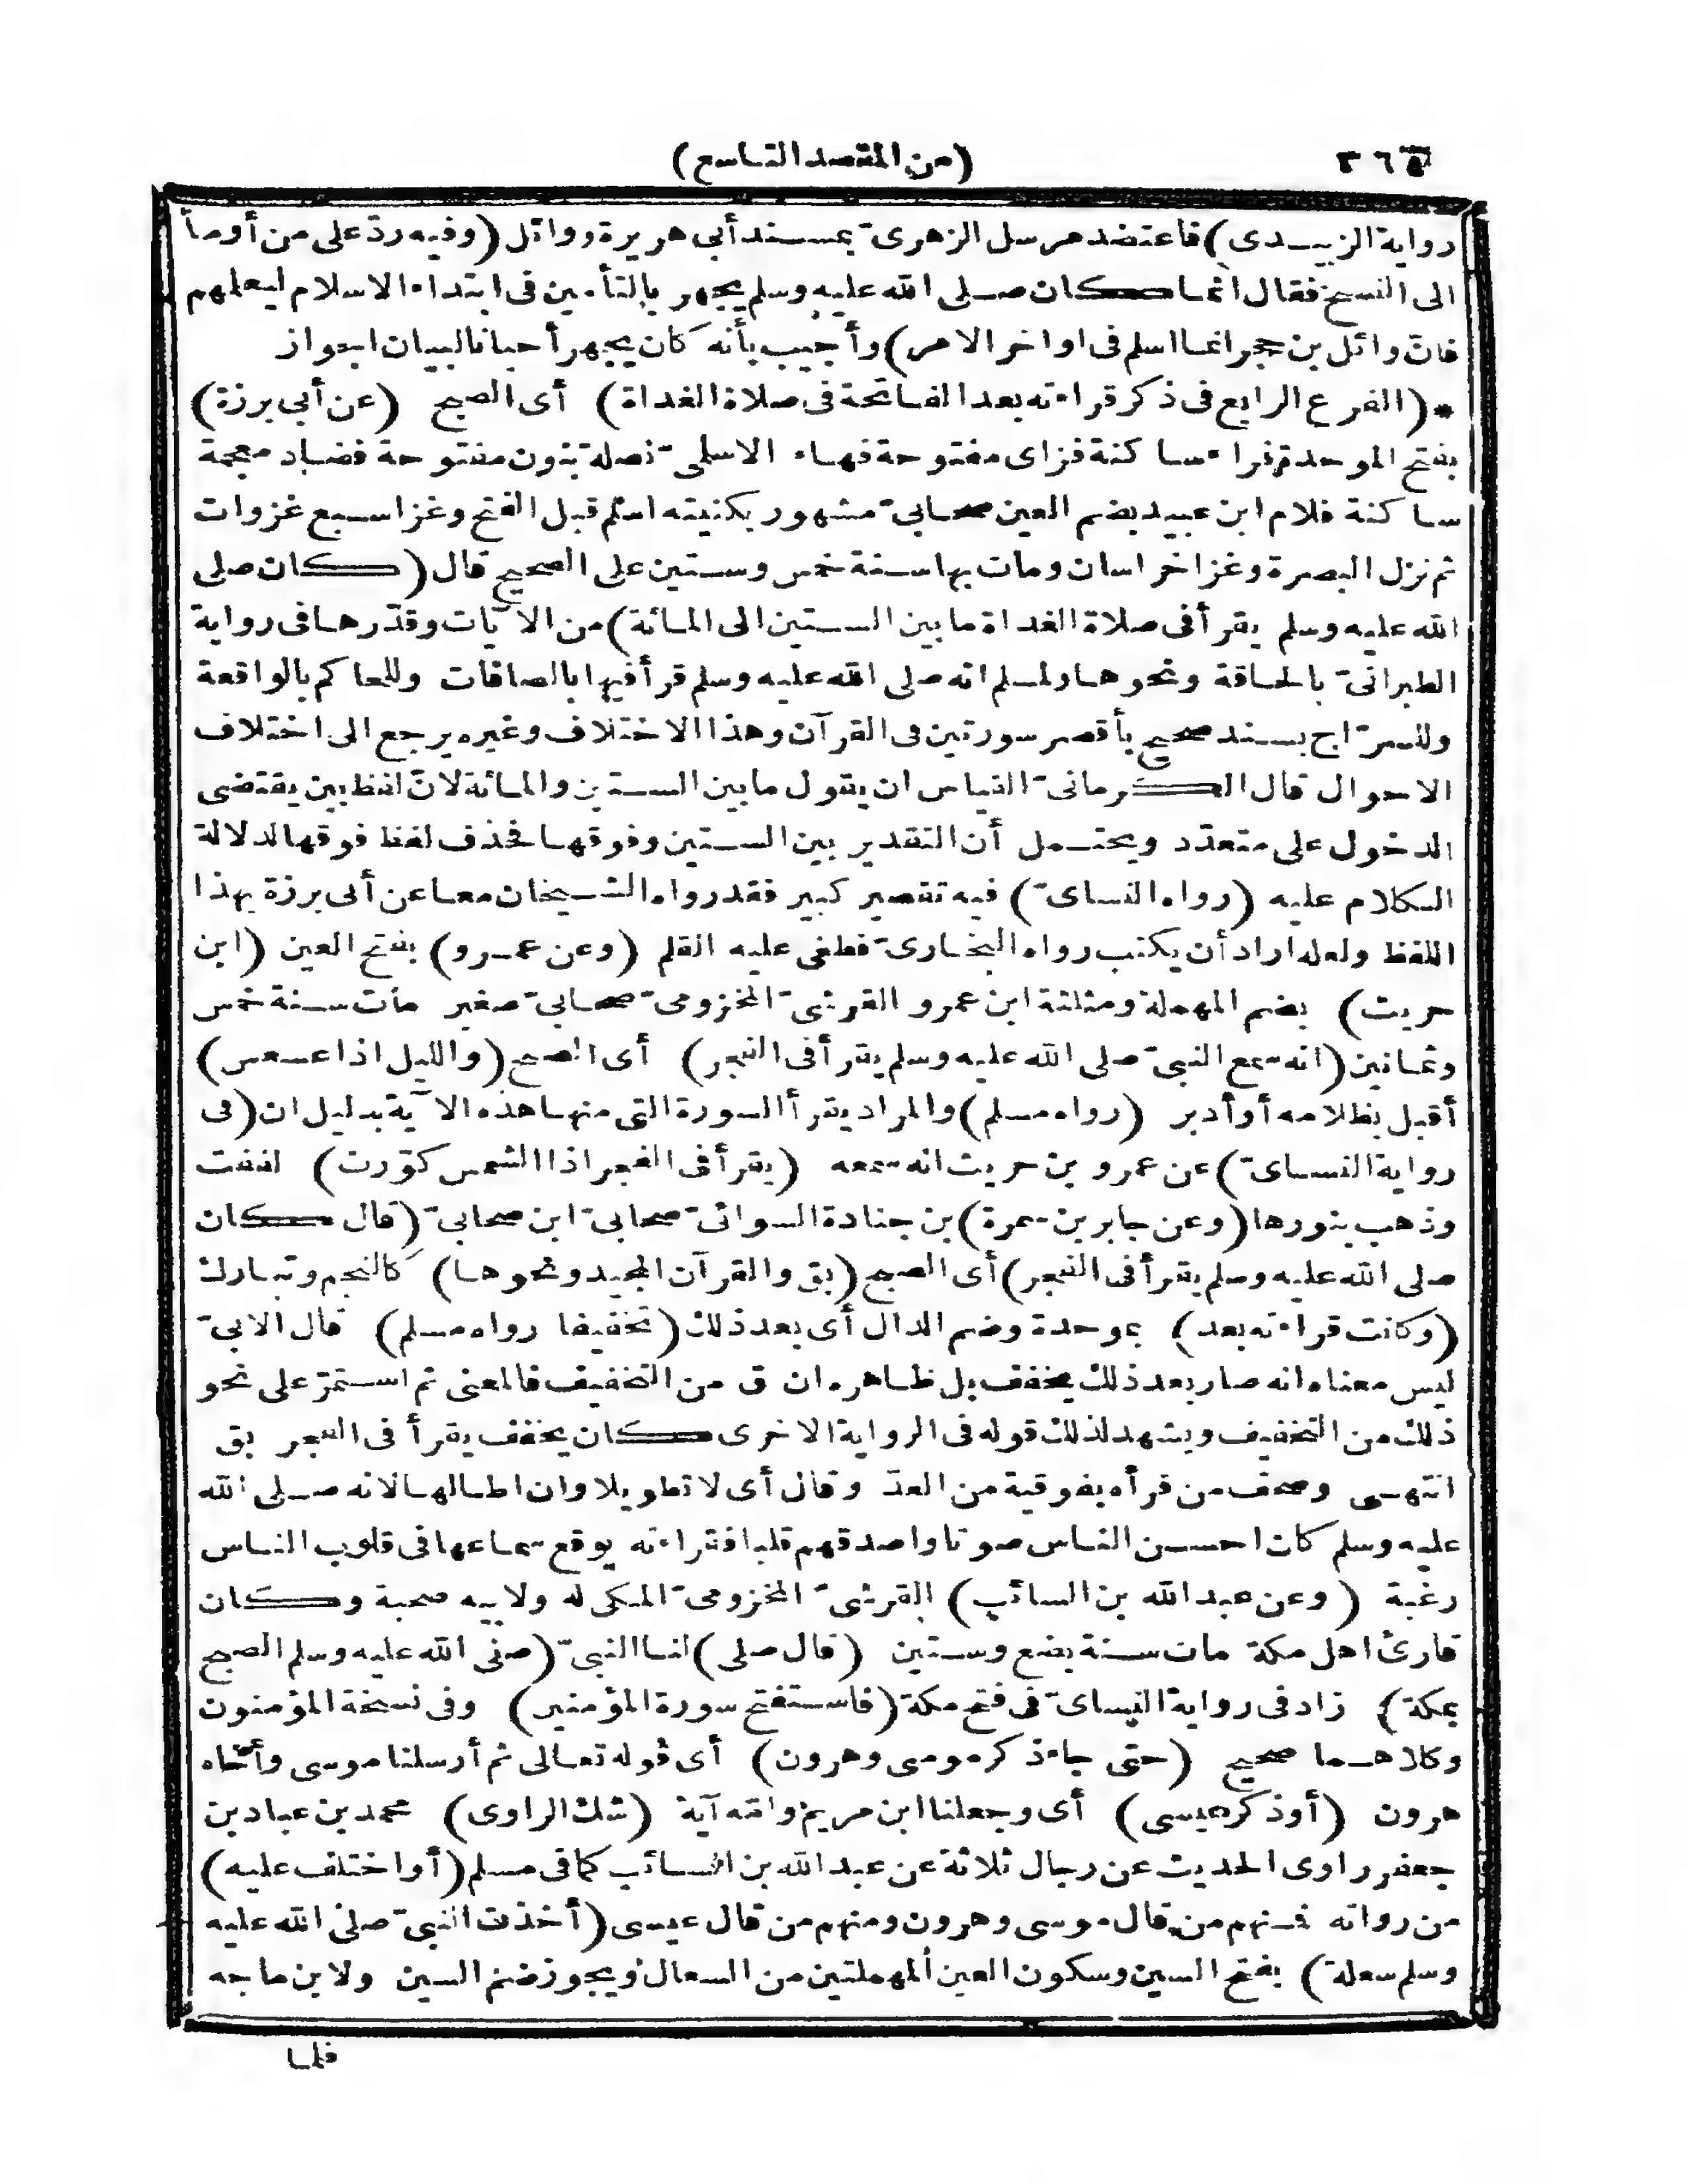 (من المقصد التاسع)
رواية الزبيدى) فاعتضد مرسل الزهرىّ بمسند أبى هريرة ووائل (وفيه ردّ على من أومأ
الى النسخ فقال انما كان صلى الله عليه وسلم يجهر بالتأمين فى ابتداء الاسلام ليعلمهم
فانّ وائل بن حجر انما اسلم فى اواخر الامر) وأجيب بأنه كان يجهر أحيانا لبيان الجواز
* (الفرع الرابع فى ذكر قراءته بعد الفاتحة فى صلاة الغداة) أى الصبح (عن أبى برزة)
بفتح الموحدة فراء ساكنة فزاى مفتوحة فهاء الاسلمىّ نضلة بنون مفتوحة فضاد معجمة
ساكنة فلام ابن عبيد بضم العين صحابىّ مشهور بكنيته اسلم قبل الفتح وغزا سبع غزوات
ثم نزل البصرة وغزا خراسان ومات بها سنة خمس وستين على الصحيح قال (كان صلى
الله عليه وسلم يقرأ فى صلاة الغداة ما بين الستين الى المائة) من الآيات وقدّرها فى رواية
الطبرانىّ بالحاقة ونحوها ولمسلم انه صلى الله عليه وسلم قرأ فيها بالصافات وللحاكم بالواقعة
وللسرّاج بسند صحيح بأقصر سورتين فى القرآن وهذا الاختلاف وغيره يرجع الى اختلاف
الاحوال قال الكرمانىّ القياس ان يقول ما بين الستين والمائة لانّ لفظ بين يقتضى
الدخول على متعدّد ويحتمل أن التقدير بين الستين وفوقها فحذف لفظ فوقها لدلالة
الكلام عليه (رواه النساىّ) فيه تقصير كبير فقد رواه الشيخان معا عن أبى برزة بهذا
اللفظ ولعله اراد أن يكتب رواه البخارىّ فطغى عليه القلم (وعن عمرو) بفتح العين (ابن
حريث) بضم المهملة ومثلثة ابن عمرو القرشىّ المخزومىّ صحابىّ صغير مات سنة خمس
وثمانين (انه سمع النبىّ صلى الله عليه وسلم يقرأ فى الفجر) أى الصبح (والليل اذا عسعس)
أقبل بظلامه أو أدبر (رواه مسلم) والمراد يقرأ السورة التى منها هذه الآية بدليل ان (فى
رواية النساىّ) عن عمرو بن حريث انه سمعه (يقرأ فى الفجر اذا الشمس كوّرت) لففت
وذهب بنورها (وعن جابر بن سمرة) بن جنادة السوائىّ صحابىّ ابن صحابىّ (قال كان
صلى الله عليه وسلم يقرأ فى الفجر) أى الصبح (بق والقرآن المجيد ونحوها) كالنجم وتبارك
(وكانت قراءته بعد) بموحدة وضم الدال أى بعد ذلك (تخفيفا رواه مسلم) قال الابىّ
ليس معناه انه صار بعد ذلك يخفف بل ظاهره ان ق من التخفيف فالمعنى ثم استمرّ على نحو
ذلك من التخفيف ويشهد لذلك قوله فى الرواية الاخرى كان يخفف يقرأ فى الفجر بق
انتهى وصحف من قرأه بفوقية من العدّ وقال أى لا تطويلا وان اطالها لانه صلى الله
عليه وسلم كان احسن الناس صوتا واصدقهم قلبا فقراءته يوقع سماعها فى قلوب الناس
رغبة (وعن عبد الله بن السائب) القرشىّ المخزومىّ المكى له ولابيه صحبة وكان
قارئ اهل مكة مات سنة بضع وستين (قال صلى) لنا النبىّ (صلى الله عليه وسلم الصبح
بمكة) زاد فى رواية النساىّ فى فتح مكة (فاستفتح سورة المؤمنين) وفى نسخة المؤمنون
وكلاهما صحيح (حتى جاء ذكر موسى وهرون) أى قوله تعالى ثم أرسلنا موسى وأخاه
هرون (أو ذكر عيسى) أى وجعلنا ابن مريم وامّه آية (شك الراوى) محمد بن عباد بن
جعفر راوى الحديث عن رجال ثلاثة عن عبد الله بن السائب كما فى مسلم (أو اختلف عليه)
من رواته فمنهم من قال موسى وهرون ومنهم من قال عيسى (أخذت النبىّ صلى الله عليه
وسلم سعلة) بفتح السين وسكون العين المهملتين من السعال ويجوز ضم السين ولابن ماجه
فلما